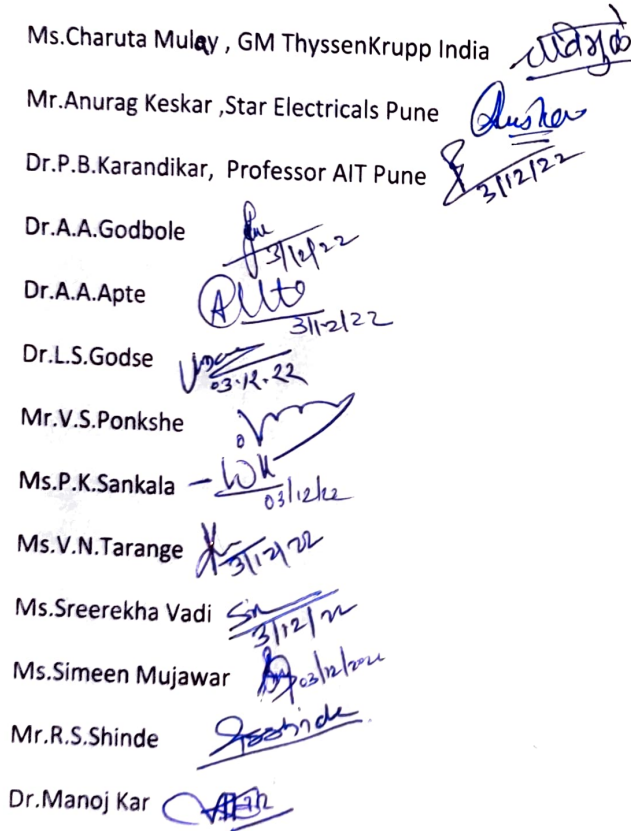 Ms.Charuta Mulay , GM ThyssenKrupp India
Mr.Anurag Keskar ,Star Electricals Pune
Dr.P.B.Karandikar, Professor AIT Pune 3/12/22
Dr.A.A.Godbole 3/12/22
Dr.A.A.Apte 3/12/22
Dr.L.S.Godse 03.12.22
Mr.V.S.Ponkshe
Ms.P.K.Sankala 03/12/22
Ms.V.N.Tarange 3/12/22
Ms.Sreerekha Vadi 3/12/22
Ms.Simeen Mujawar 03/12/2022
Mr.R.S.Shinde
Dr.Manoj Kar